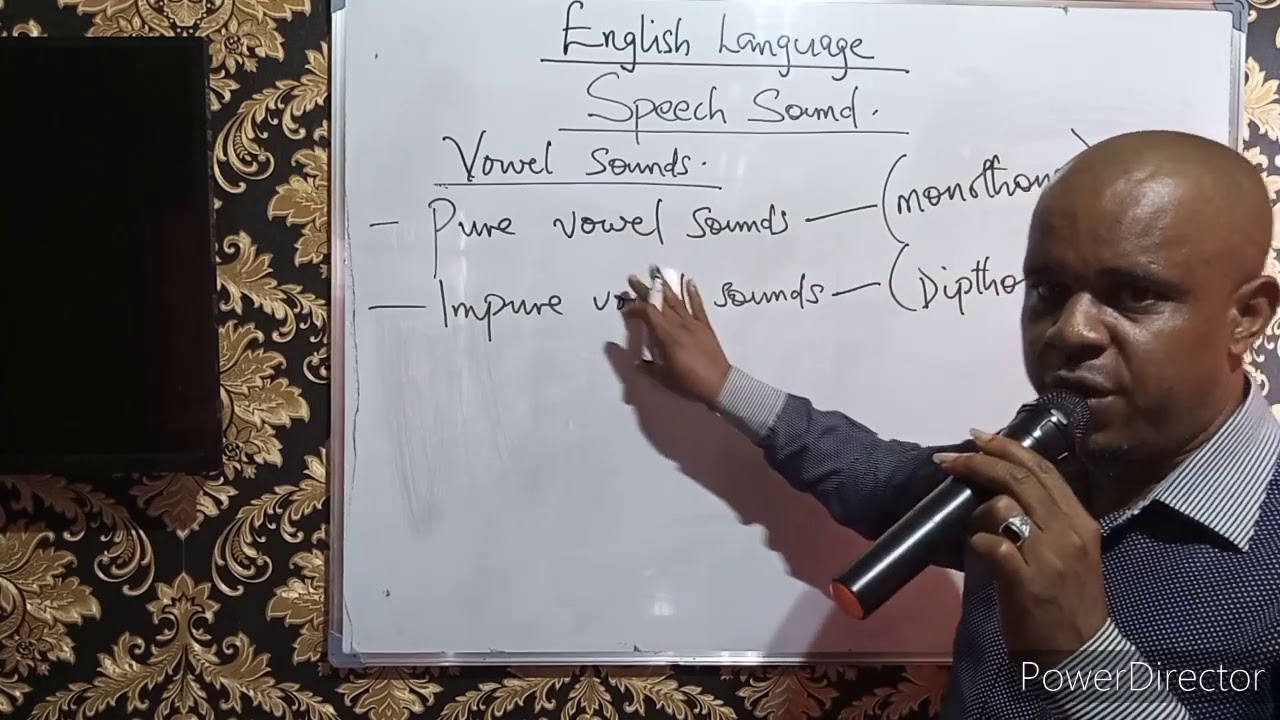 English Language
Speech Sound.
Vowel Sounds.
- Pure vowel sounds — (monothon
- Impure sounds — (Diptho
PowerDirector